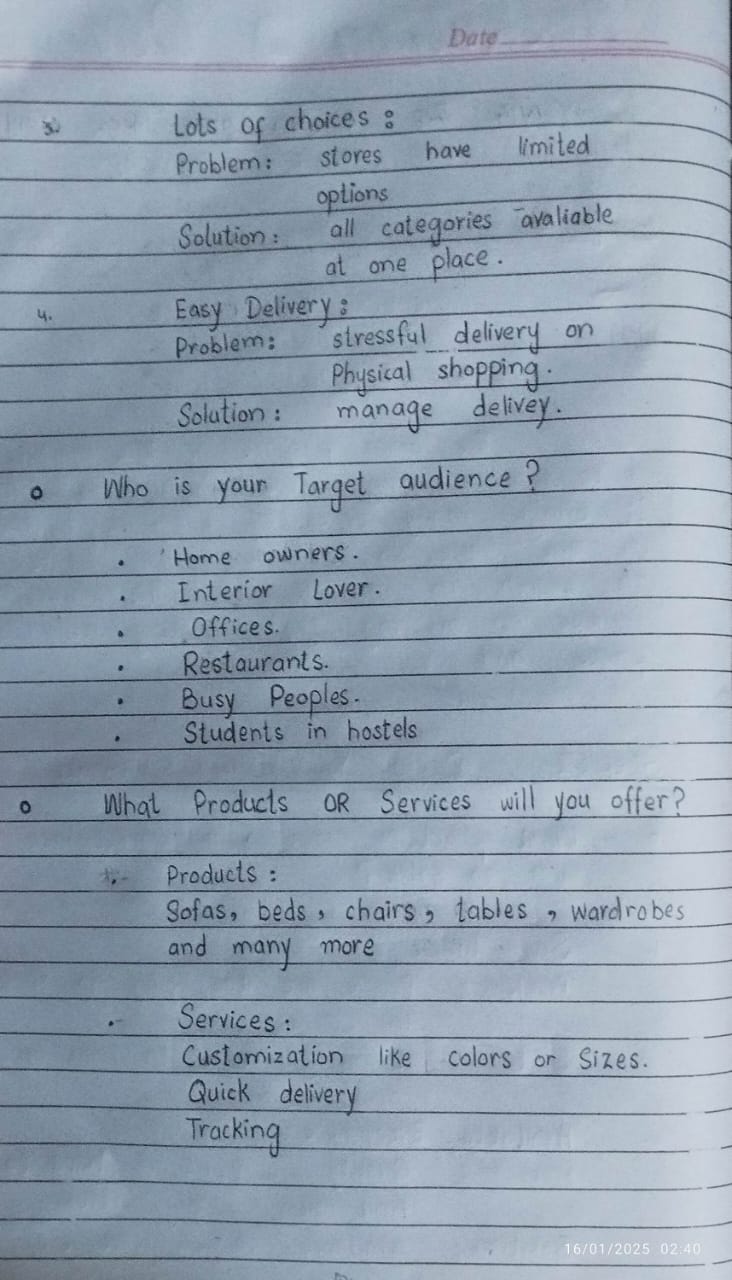 Date
3.
Lots of choices :
Problem: stores have limited
options
Solution: all categories avaliable
at one place.
4. Easy Delivery:
Problem: stressful delivery on
Physical shopping.
Solution: manage delivey.
Who is your Target audience?
• Home owners.
• Interior Lover.
• Offices.
• Restaurants.
• Busy Peoples.
• Students in hostels
What Products OR Services will you offer?
Products :
Sofas, beds, chairs, tables, wardrobes
and many more
Services:
Customization like colors or Sizes.
Quick delivery
Tracking
16/01/2025 02:40